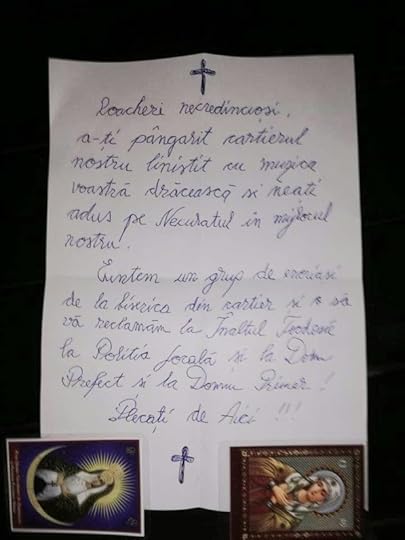 Roacheri necredincioși,
a-ți pângarit cartierul
nostru liniștit cu muzica
voastră drăcească si neați
adus pe Necuratul in mijlocul
nostru.
Suntem un grup de enoriasi
de la biserica din cartier si o să
vă reclamăm la Inaltul Teodosie
la Politia Locală si la Dom
Prefect si la Domnu Primar!
Plecați de Aici !!!